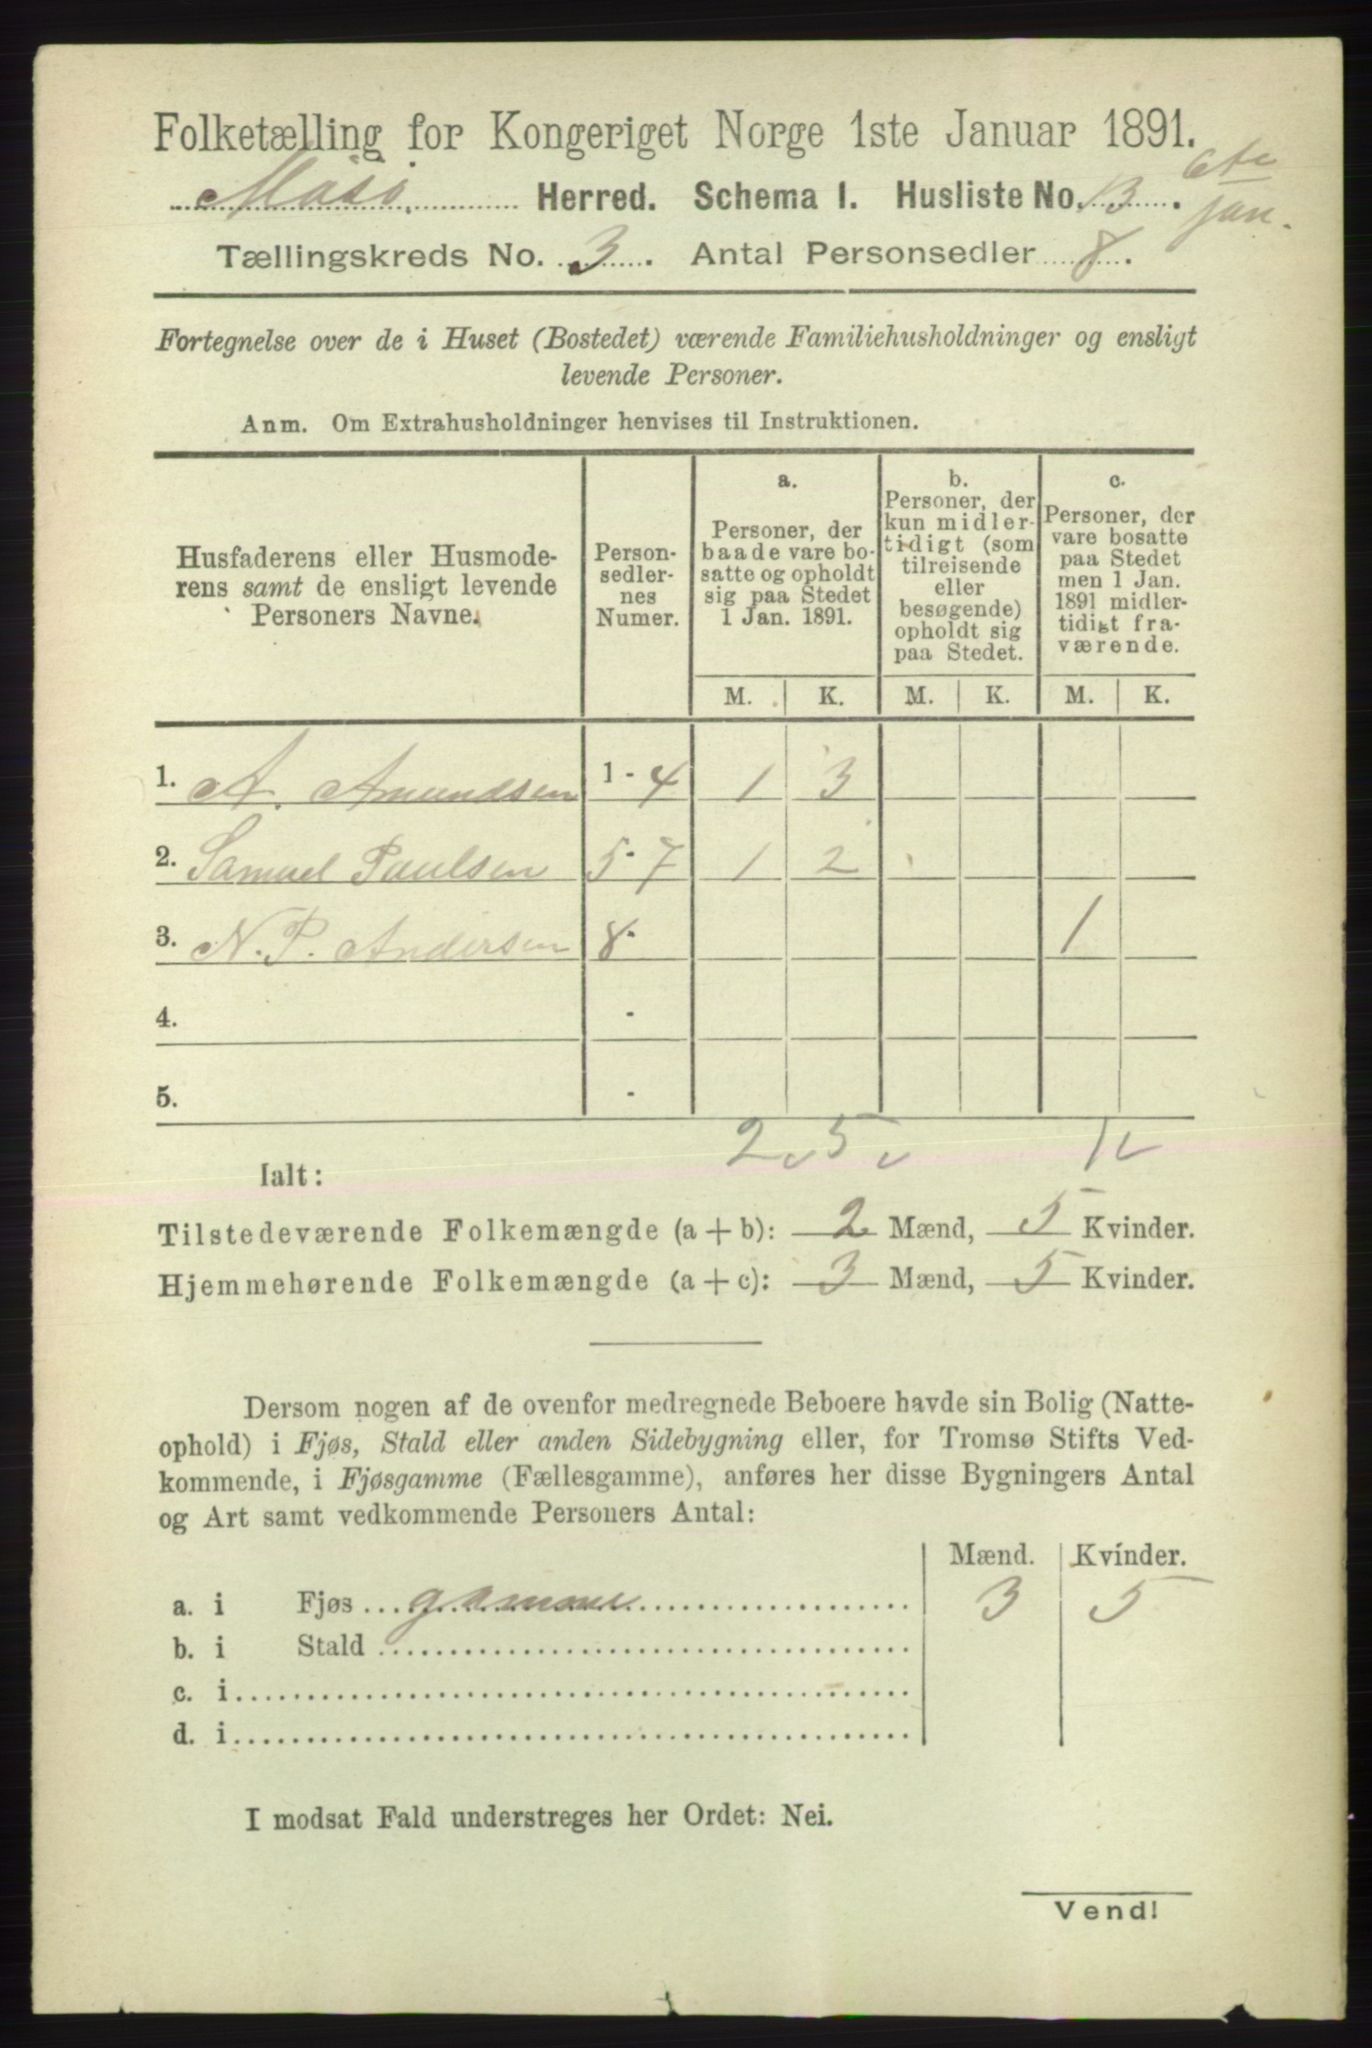 Folketælling for Kongeriget Norge 1ste Januar 1891.
Masø. Herred. Schema I. Husliste No. 13. 6te
jan.
Tællingskreds No. 3. Antal Personsedler 8.
Fortegnelse over de i Huset (Bostedet) værende Familiehusholdninger og ensligt
levende Personer.
Anm. Om Extrahusholdninger henvises til Instruktionen.
Husfaderens eller Husmode-
rens samt de ensligt levende
Personers Navne.
Person-
sedler-
nes
Numer.
a.
Personer, der
baade vare bo-
satte og opholdt
sig paa Stedet
1 Jan. 1891.
b.
Personer, der
kun midler-
tidigt (som
tilreisende
eller
besøgende)
opholdt sig
paa Stedet.
c.
Personer, der
vare bosatte
paa Stedet
men 1 Jan.
1891 midler-
tidigt fra-
værende.
M. K. M. K. M. K.
1. A. Amundsen 1-4 1 3
2. Samuel Paulsen 5-7 1 2
3. N. P. Andersen 8- 1
4. -
5. -
Ialt: 2 5 1
Tilstedeværende Folkemængde (a + b): 2 Mænd, 5 Kvinder.
Hjemmehørende Folkemængde (a + c): 3 Mænd, 5 Kvinder.
Dersom nogen af de ovenfor medregnede Beboere havde sin Bolig (Natte-
ophold) i Fjøs, Stald eller anden Sidebygning eller, for Tromsø Stifts Ved-
kommende, i Fjøsgamme (Fællesgamme), anføres her disse Bygningers Antal
og Art samt vedkommende Personers Antal:
Mænd. Kvinder.
a. i Fjøs gamme 3 5
b. i Stald
c. i
d. i
I modsat Fald understreges her Ordet: Nei.
Vend!